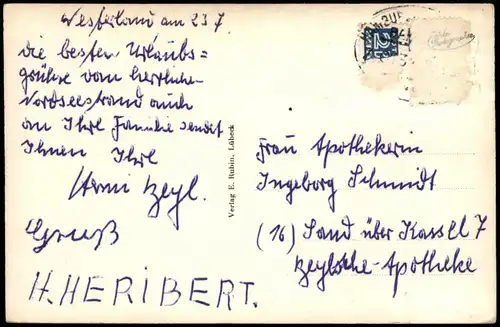 Westerland am 23 7
die besten Urlaubs=
grüße vom herrlichen
Nordseestrand auch
an Ihre Familie sendet
Ihnen Ihre
Gruß
H. HERIBERT.
Verlag E. Rubin, Lübeck
2
Frau Apothekerin
Ingeborg Schmidt
(16) Sand über Kassel 7
Heylsche-Apotheke